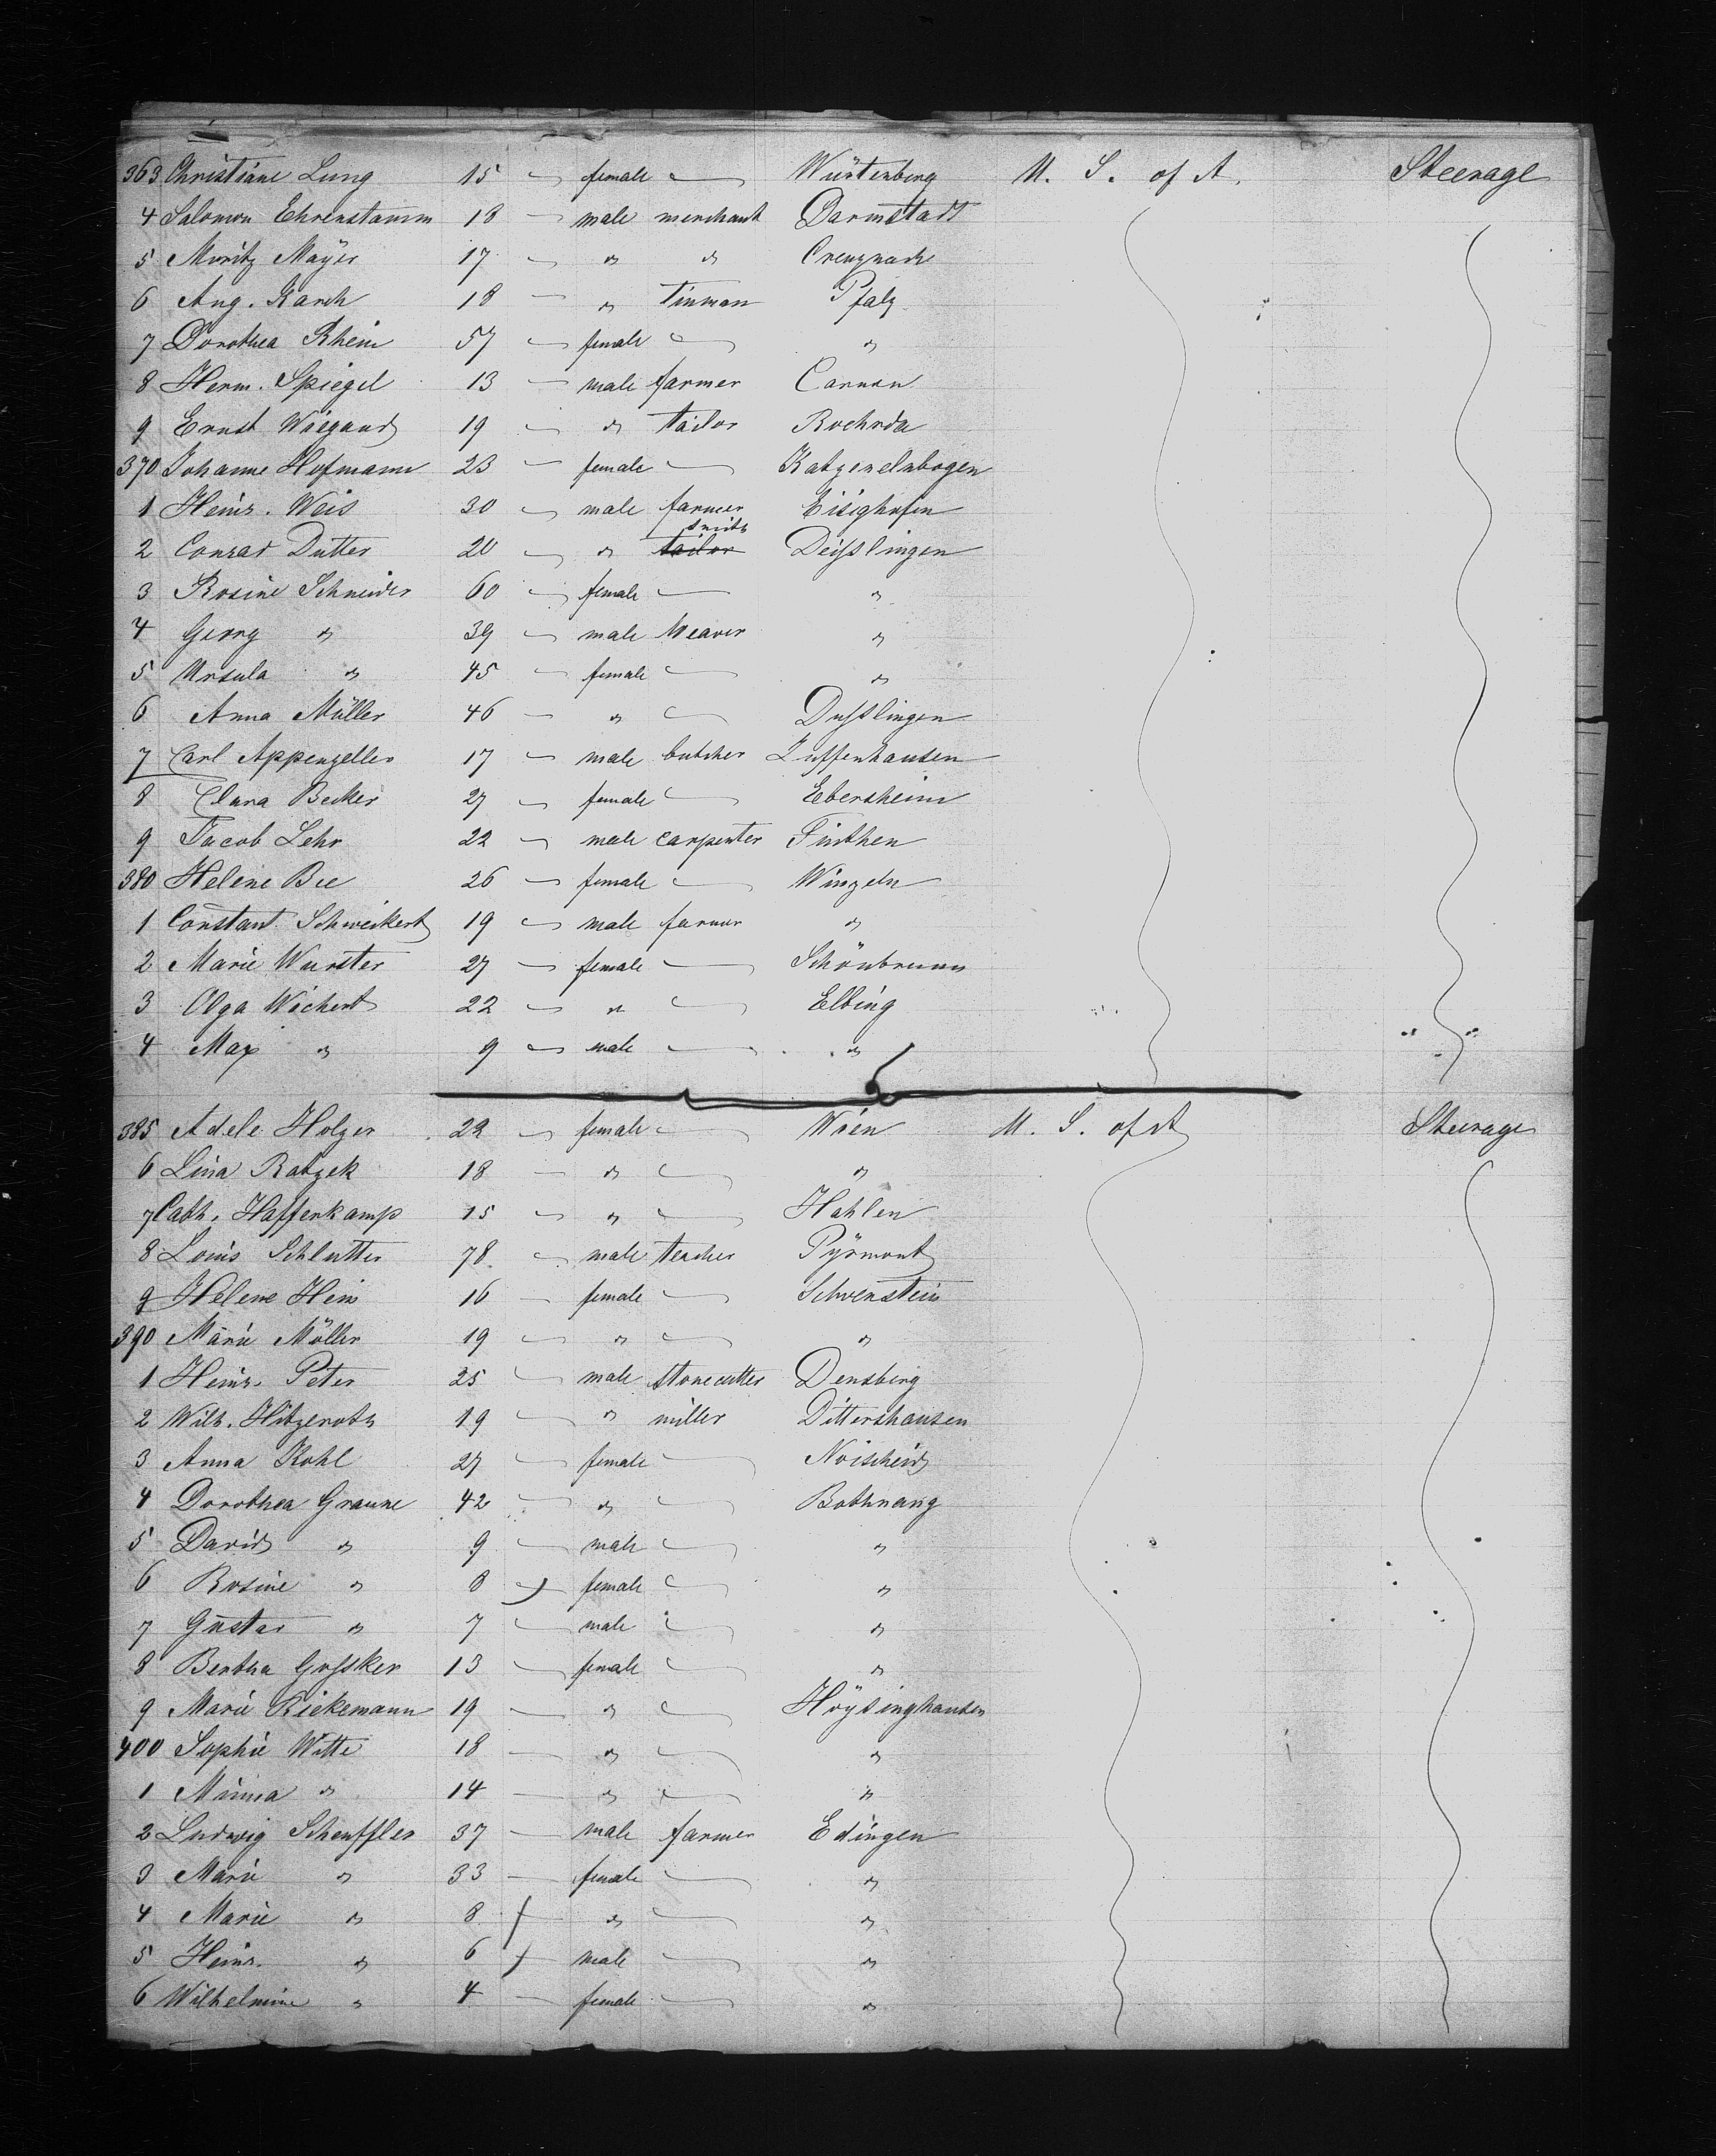 363 Christiane Lung 15 — female — Würtenberg U. S. of A. Steerage
4 Salomon Ehrenstamm 18 — male merchant Darmstadt
5 Moritz Mayer 17 — " " Creuznach
6 Aug. Karch 18 — " tinman Pfalz
7 Dorothea Rhein 57 — female — "
8 Herm. Spiegel 13 — male farmer
9 Ernst Wiegand 19 — " tailor Rochrda
370 Johanne Hofmann 23 — female — Katzenelnbogen
1 Heinr. Weis 30 — male farmer Eisighofen
2 Conrad Dutter 20 — " tailor smith Deisslingen
3 Rosine Schneider 60 — female — "
4 Georg " 39 — male Weaver "
5 Ursula " 45 — female — "
6 Anna Müller 46 — " — Dusslingen
7 Carl Appenzeller 17 — male butcher Zuffenhausen
8 Clara Becker 27 — female — Ebersheim
9 Jacob Lehr 22 — male carpenter Finthen
380 Helene Bee 26 — female — Winzeln
1 Constant. Schweikert 19 — male farmer "
2 Marie Wurster 27 — female — Schönbrunn
3 Olga Wichert 22 — " — Elbing
4 Max " 9 — male — "
385 Adele Holzer 22 — female — Wien U. S. of A Steerage
6 Lina Ratzek 18 — " — "
7 Cath. Hafferkamp 15 — " — Hahlen
8 Louis Schlutter 78 — male teacher Pyrmont
9 Helene Hein 16 — female — Schvenstein
390 Marie Möller 19 — " — "
1 Heinr. Peter 25 — male stonecutter Densberg
2 Wilh. Hitzeroth 19 — " miller Dittershausen
3 Anna Kohl 27 — female — Noischeid
4 Dorothea Graune 42 — " — Bothnang
5 David " 9 — male — "
6 Rosine " 8 — female — "
7 Gustav " 7 — male — "
8 Bertha Gossker 13 — female — "
9 Marie Riekemann 19 — " — Hoysinghausen
400 Sophie Witte 18 — " — "
1 Minna " 14 — " — "
2 Ludwig Scheuffler 37 — male farmer Edingen
3 Marie " 33 — female — "
4 Marie " 8 — " — "
5 Heinr. " 6 — male — "
6 Wilhelmine " 4 — female — "